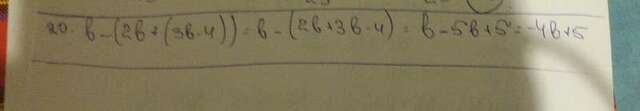 20. b-(2b+(3b-4))=b-(2b+3b-4)=b-5b+5=-4b+5